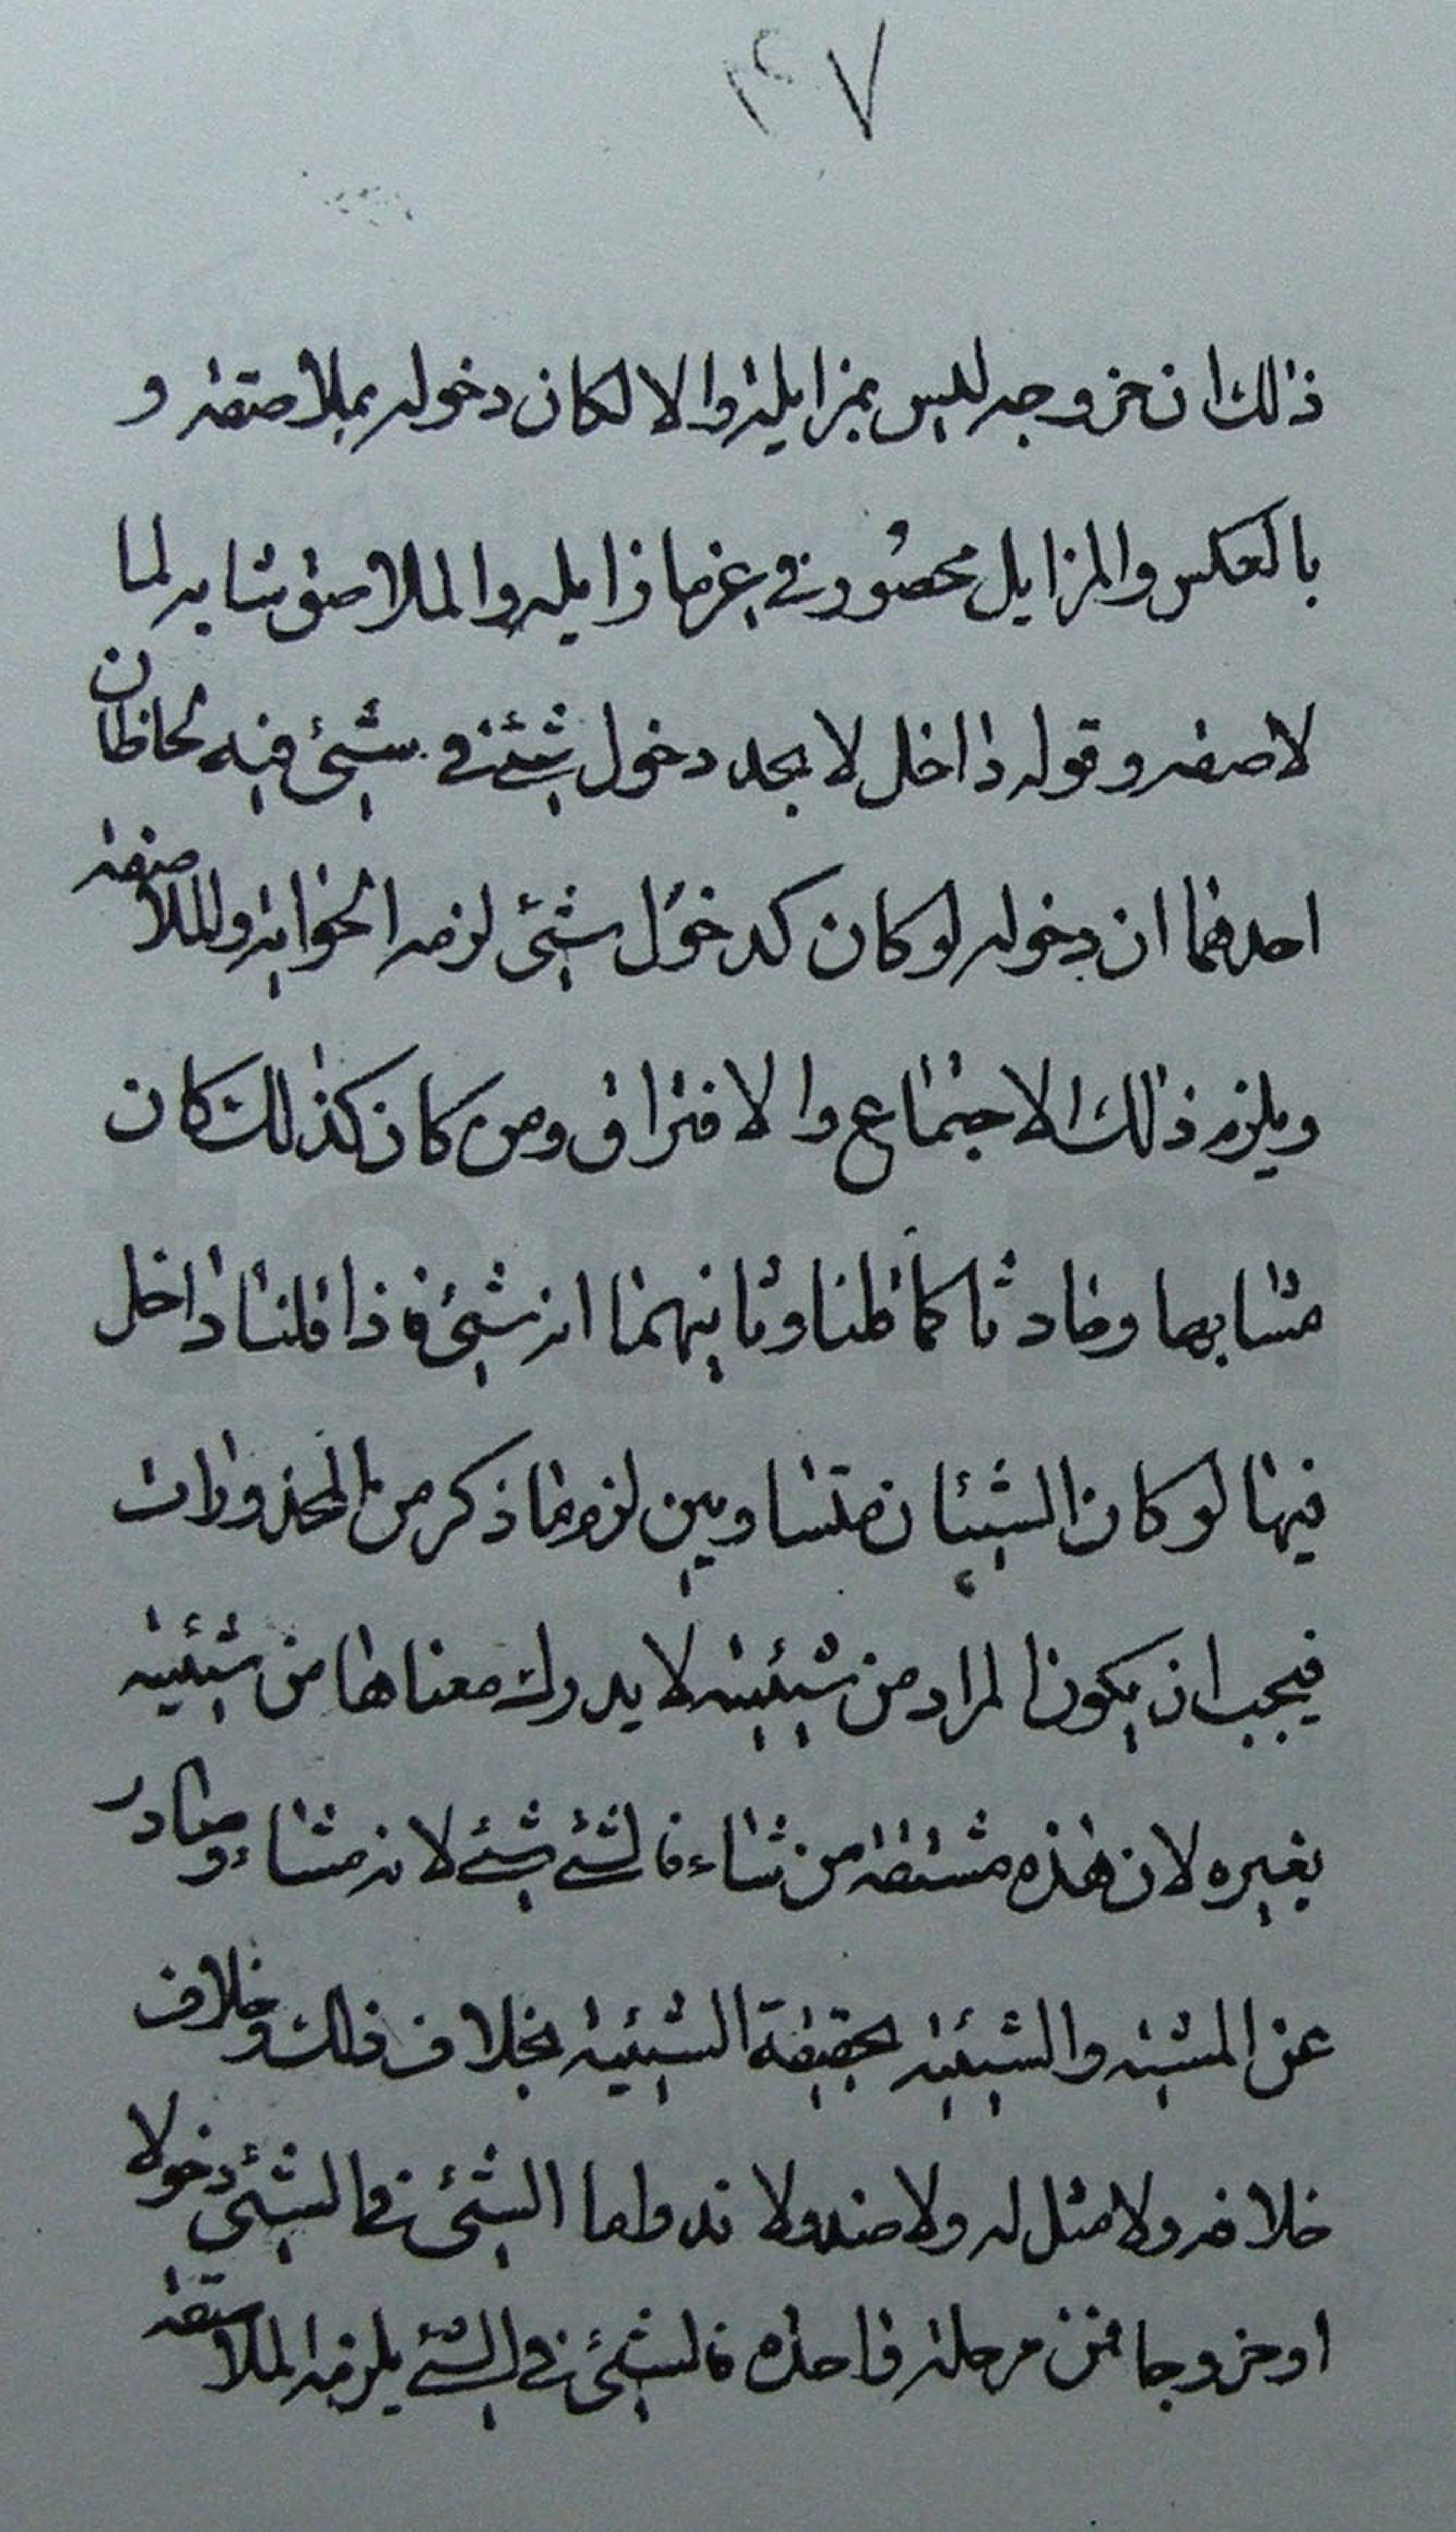 ٤٧
ذلك ان خروجه ليس بمزايلة والا لكان دخوله بملاصقة و
بالعكس والمزايل محصور في غير ما زايله والملاصق مشابه لما
لاصقه وقوله داخل لا بحد دخول شئ في شئ فيه لحاظان
احدهما ان دخوله لو كان كدخول شئ لزمه الحواية والملاصقة
ويلزم ذلك الاجتماع والافتراق ومن كان كذلك كان
مشابها وحادثا كما قلنا وثانيهما انه شئ فاذا قلنا داخل
فيها لو كان الشيئان متساويين لزم ما ذكر من المحذورات
فيجب ان يكون المراد من شيئية لا يدرك معناها من شيئية
بغيره لان هذه مشتقة من شاء فالشئ شئ لانه مشاء وصادر
عن المشية والشيئية بحقيقة الشيئية بخلاف ذلك وخلاف
خلافه ولا مثل له ولا ضد ولا ند واما الشئ في الشئ دخولا
او خروجا فمن مرحلة واحدة فالشئ في الشئ يلزمه الملاصقة